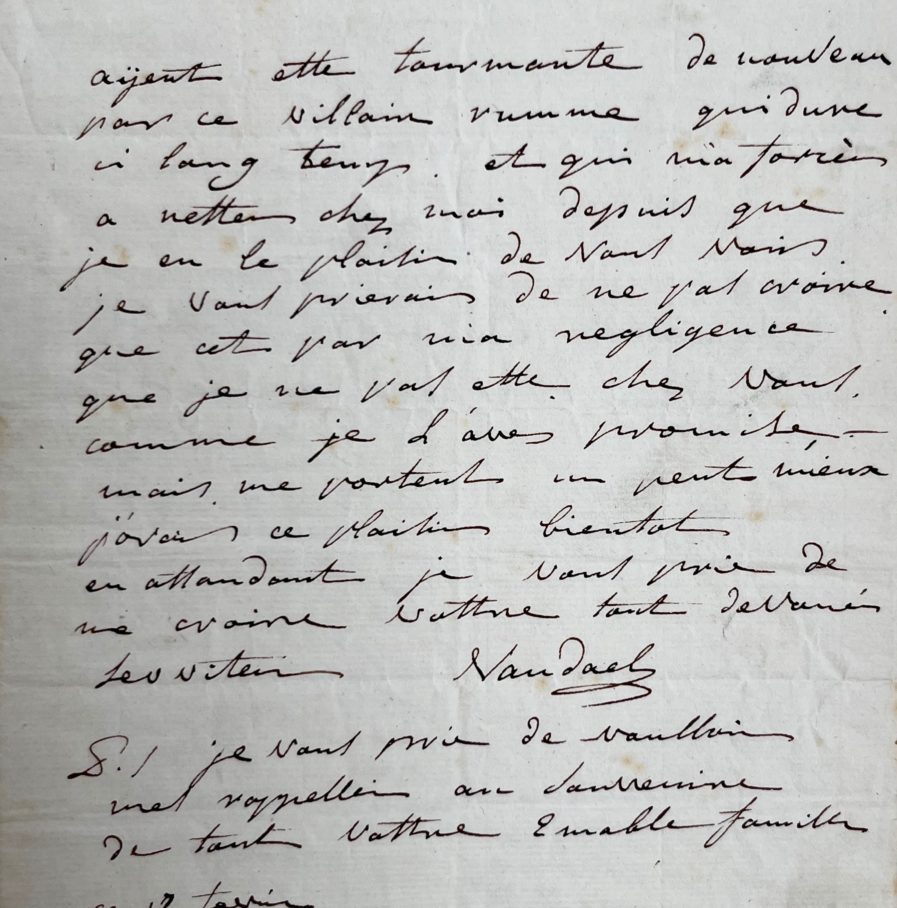 aÿent ette tourmante de nouveau
par ce villain rumme qui dure
ci long temps. et qui m'a forcèr
a rettere chez moi depuis que
je eu le plaisir de vous voir.
je vous prierais de ne pas croire
que cet par ma negligence
que je ne pas ette chez vous.
comme je l'aves promise -
mais me portent un peut mieux
j'orai ce plaisir bientot
en attandant je vous prie de
me croire vottre tout devouér
serviteur Vandael
P.S je vous prie de voulloir
mes rappeller au souvenire
de tout vottre Emable famille